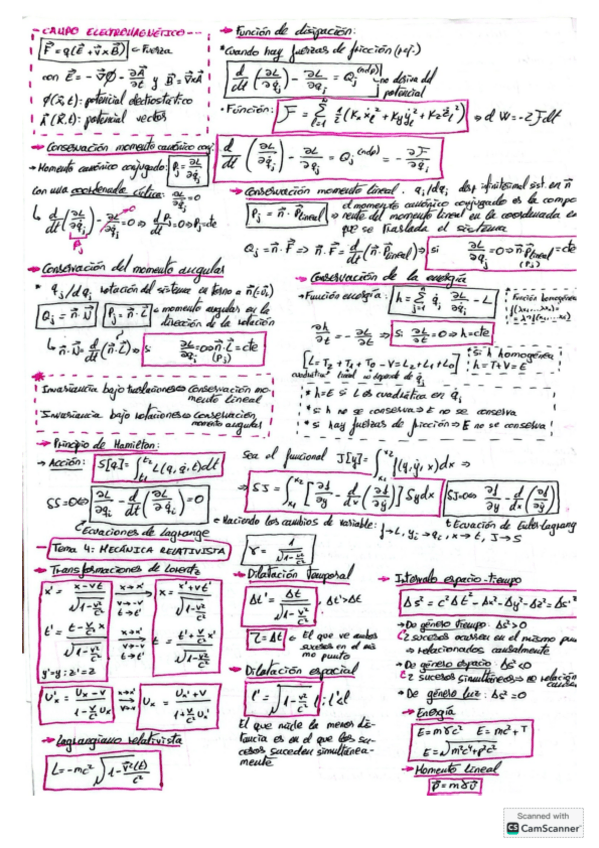 - CAMPO ELECTROMAGNÉTICO:
F⃗ = q(E⃗ + v⃗ x B⃗) ← Fuerza
con E⃗ = -∇⃗Ø - ∂A⃗/∂t y B⃗ = ∇⃗xA⃗
Ø(x⃗,t): potencial electrostático
A⃗(R⃗,t): potencial vector
→ Conservación momento canónico conj:
→ Momento canónico conjugado: Pj = ∂L/∂q̇j
Con una coordenada cíclica: ∂L/∂qj = 0
↳ d/dt(∂L/∂q̇j) - ∂L/∂qj = 0 ⇒ dPj/dt = 0 ⇒ Pj = cte
→ Función de disipación:
* Cuando hay fuerzas de fricción
d/dt(∂L/∂q̇j) - ∂L/∂qj = Qj^(ndp) no deriva del potencial
• Función: F = Σ 1/2 (Kx ẋi² + Ky ẏi² + Kz żi²) ⇒ dW = -2Fdt
d/dt(∂L/∂q̇j) - ∂L/∂qj = Qj^(ndp) = -∂F/∂q̇j
→ Conservación momento lineal. qj/dqj desp infinitesimal sist. en n⃗
Pj = n⃗ · P⃗lineal
el momento canónico conjugado es la compo
nente del momento lineal en la coordenada en
que se traslada el sistema
Qj = n⃗ · F⃗ ⇒ n⃗ · F⃗ = d/dt(n⃗ · P⃗lineal) ⇒ si ∂L/∂qj = 0 ⇒ n⃗ · P⃗lineal = cte
(Pj)
→ Conservación del momento angular
* qj/dqj rotación del sistema en torno a n⃗
Qj = n⃗ · N⃗ Pj = n⃗ · L⃗ ← momento angular en la
dirección de la rotación
↳ n⃗ · N⃗ = d/dt(n⃗ · L⃗) ⇒ si ∂L/∂qj = 0 ⇒ n⃗ · L⃗ = cte
(Pj)
→ Conservación de la energía
→ Función energía: h = Σ q̇j ∂L/∂q̇j - L
Función homogénea
∂h/∂t = -∂L/∂t ⇒ si ∂L/∂t = 0 ⇒ h = cte
[L = T2 + T1 + T0 - V = L2 + L1 + L0]
cuadrática lineal no depende de q̇j
si h homogénea
h = T + V = E
* h = E si L es cuadrática en q̇j
* si h no se conserva ⇒ E no se conserva
* si hay fuerzas de fricción ⇒ E no se conserva
Invariancia bajo traslaciones ⇔ conservación mo-
mento lineal
Invariancia bajo rotaciones ⇔ conservación
momento angular
→ Principio de Hamilton:
→ Acción: S[q] = ∫t1^t2 L(q, q̇, t)dt
δS = 0 ⇔ ∂L/∂qi - d/dt(∂L/∂q̇i) = 0
Ecuaciones de Lagrange
Sea el funcional J[y] = ∫x1^x2 f(y, ẏ, x)dx ⇒
⇒ δJ = ∫x1^x2 [∂f/∂y - d/dx(∂f/∂ẏ)] δy dx
δJ = 0 ⇔ ∂f/∂y - d/dx(∂f/∂ẏ)
• Haciendo los cambios de variable: f → L, yi → qi, x → t, J → S
Ecuación de Euler-Lagrange
- Tema 4: MECÁNICA RELATIVISTA
→ Transformaciones de Lorentz
x' = x-vt/√(1-v²/c²) x→x' v→-v t→t' x = x'+vt'/√(1-v²/c²)
t' = t-v/c² x/√(1-v²/c²) x→x' v→-v t→t' t = t'+v/c² x'/√(1-v²/c²)
y' = y; z' = z
U'x = Ux - v/1-v/c² Ux x→x' v→-v Ux = U'x + v/1+v/c² U'x
→ Lagrangiano relativista
L = -mc² √(1-v⃗²(t)/c²)
γ = 1/√(1-v²/c²)
→ Dilatación temporal
Δt' = Δt/√(1-v²/c²), Δt' > Δt
τ = Δt ← El que ve ambos
sucesos en el mis
mo punto
→ Dilatación espacial
l' = √(1-v²/c²) l; l' < l
El que mide la menor dis-
tancia es en el que los su-
cesos suceden simultánea-
mente
→ Intervalo espacio-tiempo
Δs² = c²Δt² - Δx² - Δy² - Δz² = Δs'²
→ De género tiempo: Δs² > 0
2 sucesos ocurren en el mismo pun
⇒ relacionados causalmente
→ De género espacio: Δs² < 0
2 sucesos simultáneos ⇒ relación
causa
→ De género luz: Δs² = 0
→ Energía
E = mγc² E = mc² + T
E = √m²c⁴+p²c²
→ Momento lineal
p⃗ = mγv⃗
Scanned with
CS CamScanner